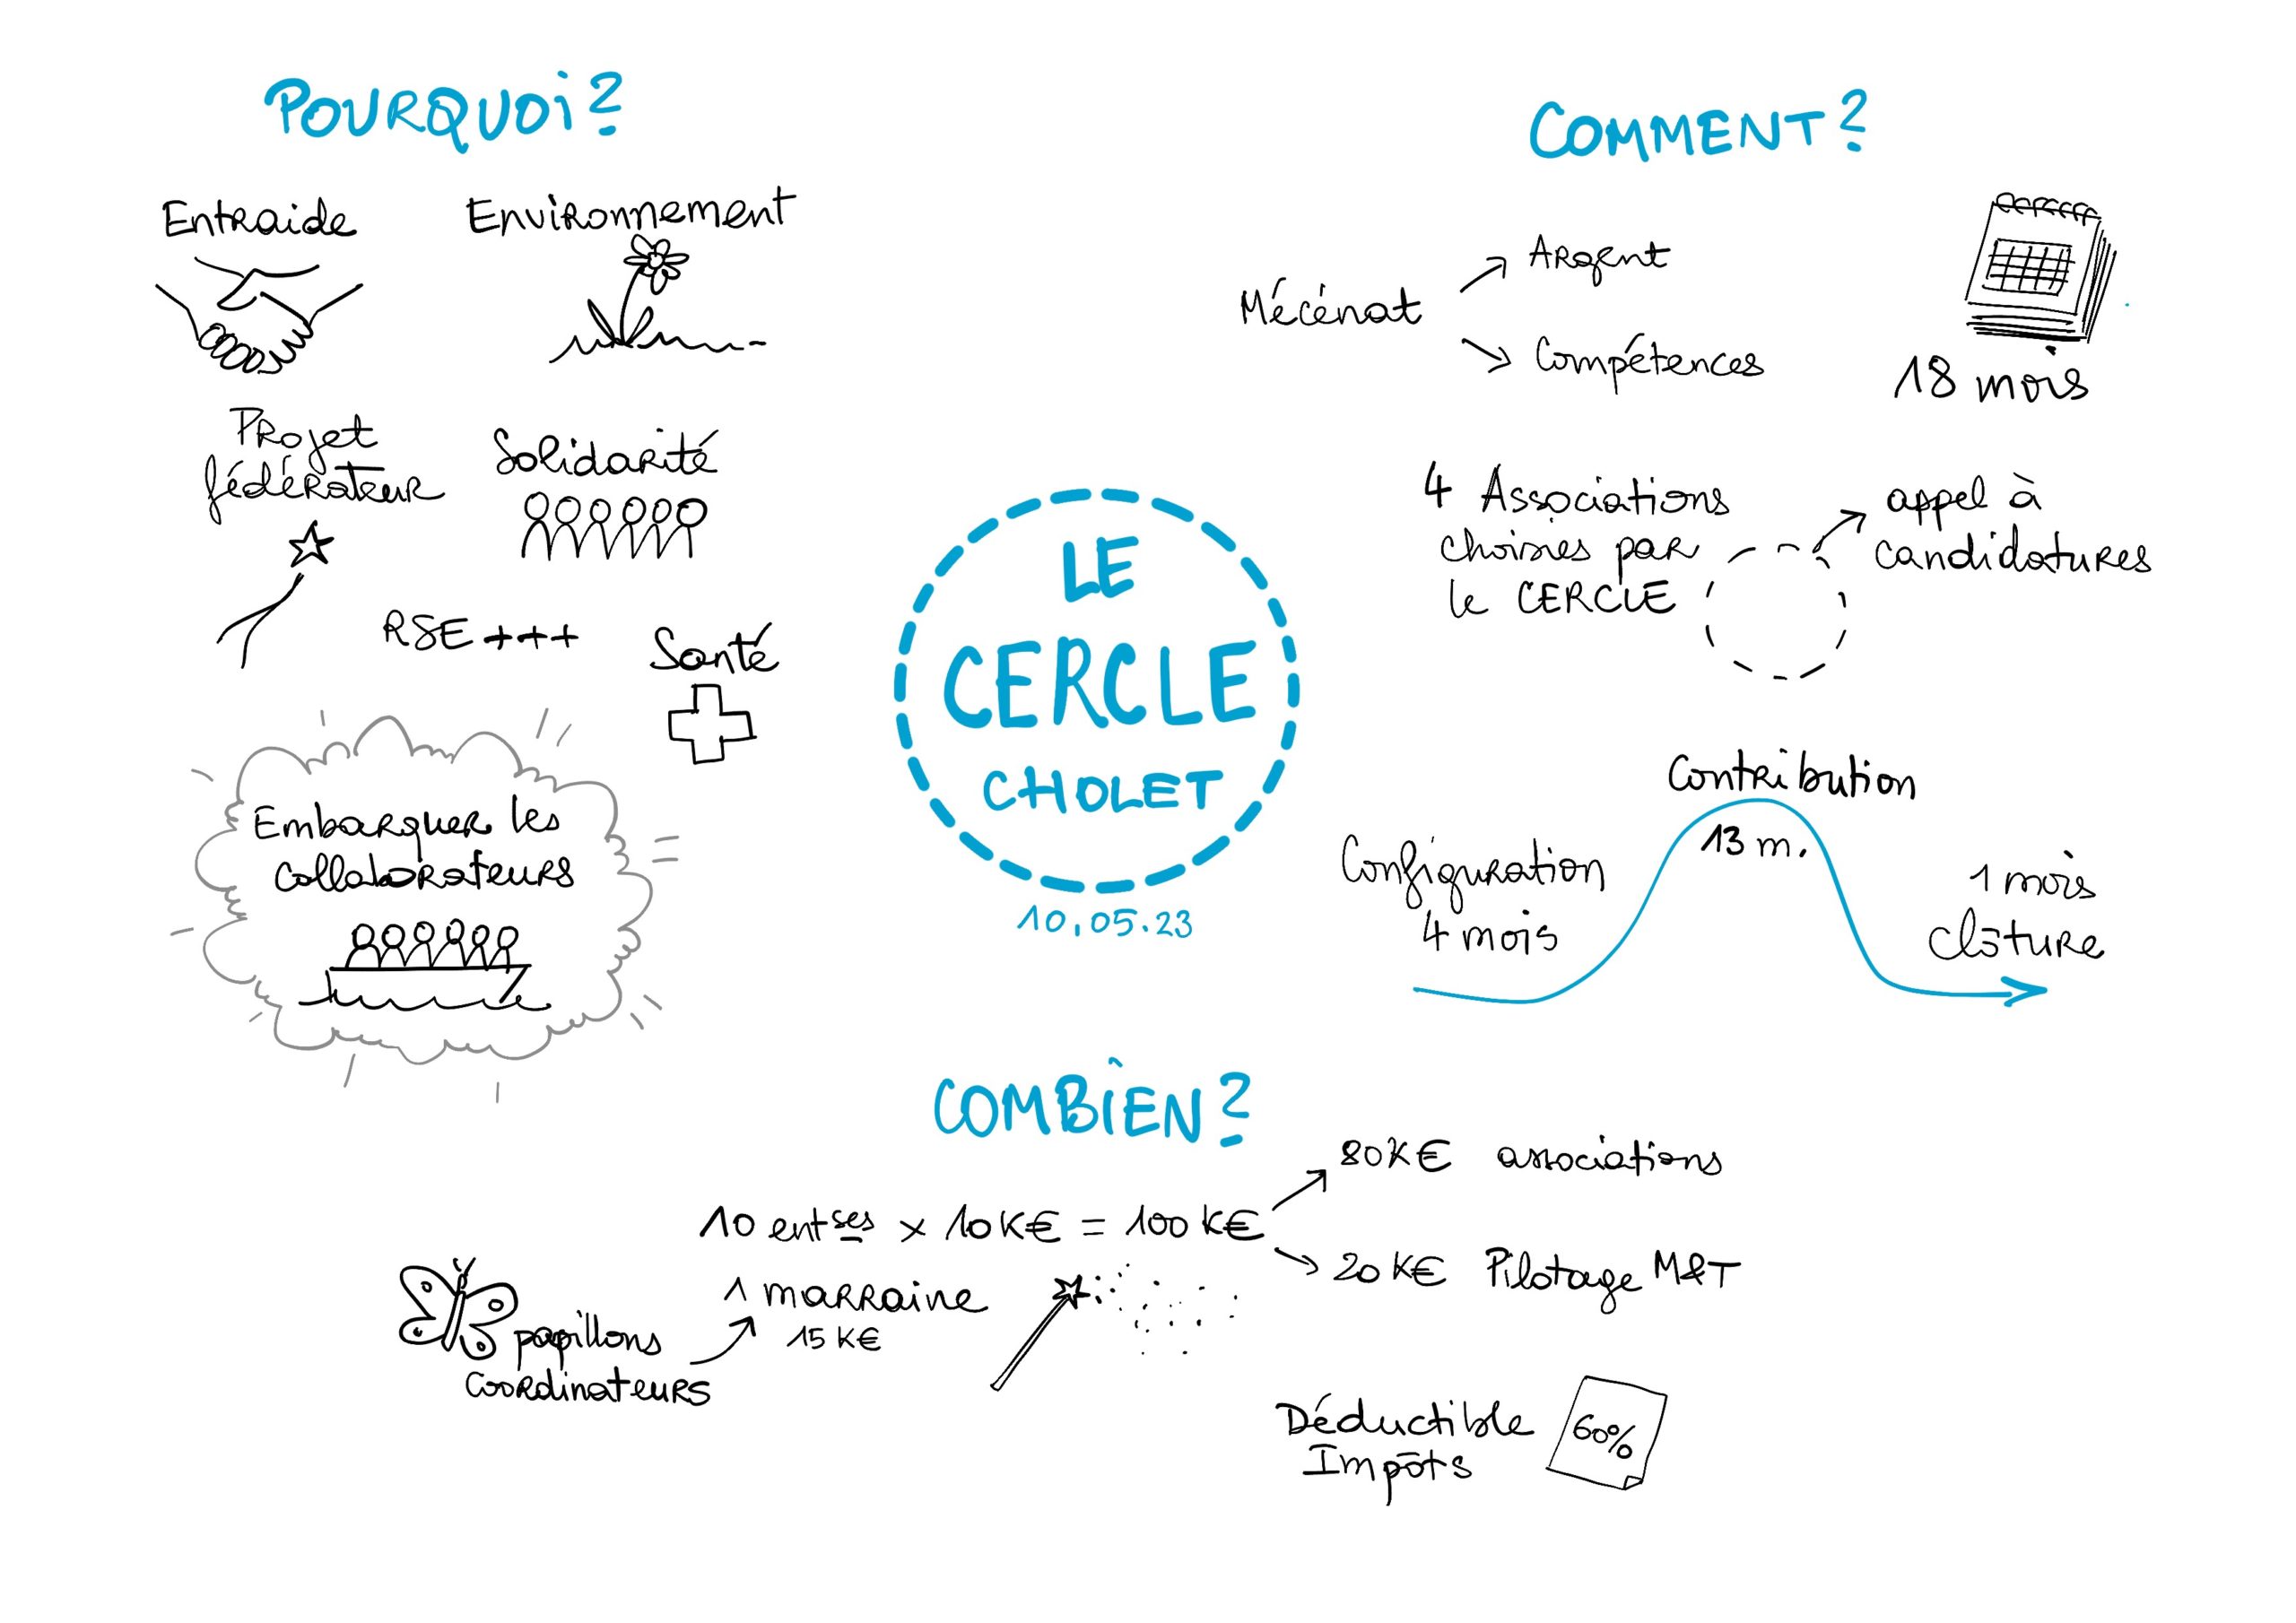 POURQUOI?
Entraide
Environnement
Projet
fédérateur
Solidarité
RSE +++
Santé
Embarquer les
collaborateurs
LE
CERCLE
CHOLET
10.05.23
COMMENT?
Mécénat
Argent
Compétences
18 mois
4 Associations
choisies par
le CERCLE
appel à
candidatures
Configuration
4 mois
Contribution
13 m.
1 mois
clôture
COMBIEN?
10 entses x 10K€ = 100K€
80K€ associations
20K€ Pilotage M&T
papillons
coordinateurs
1 marraine
15K€
Déductible
Impôts
60%